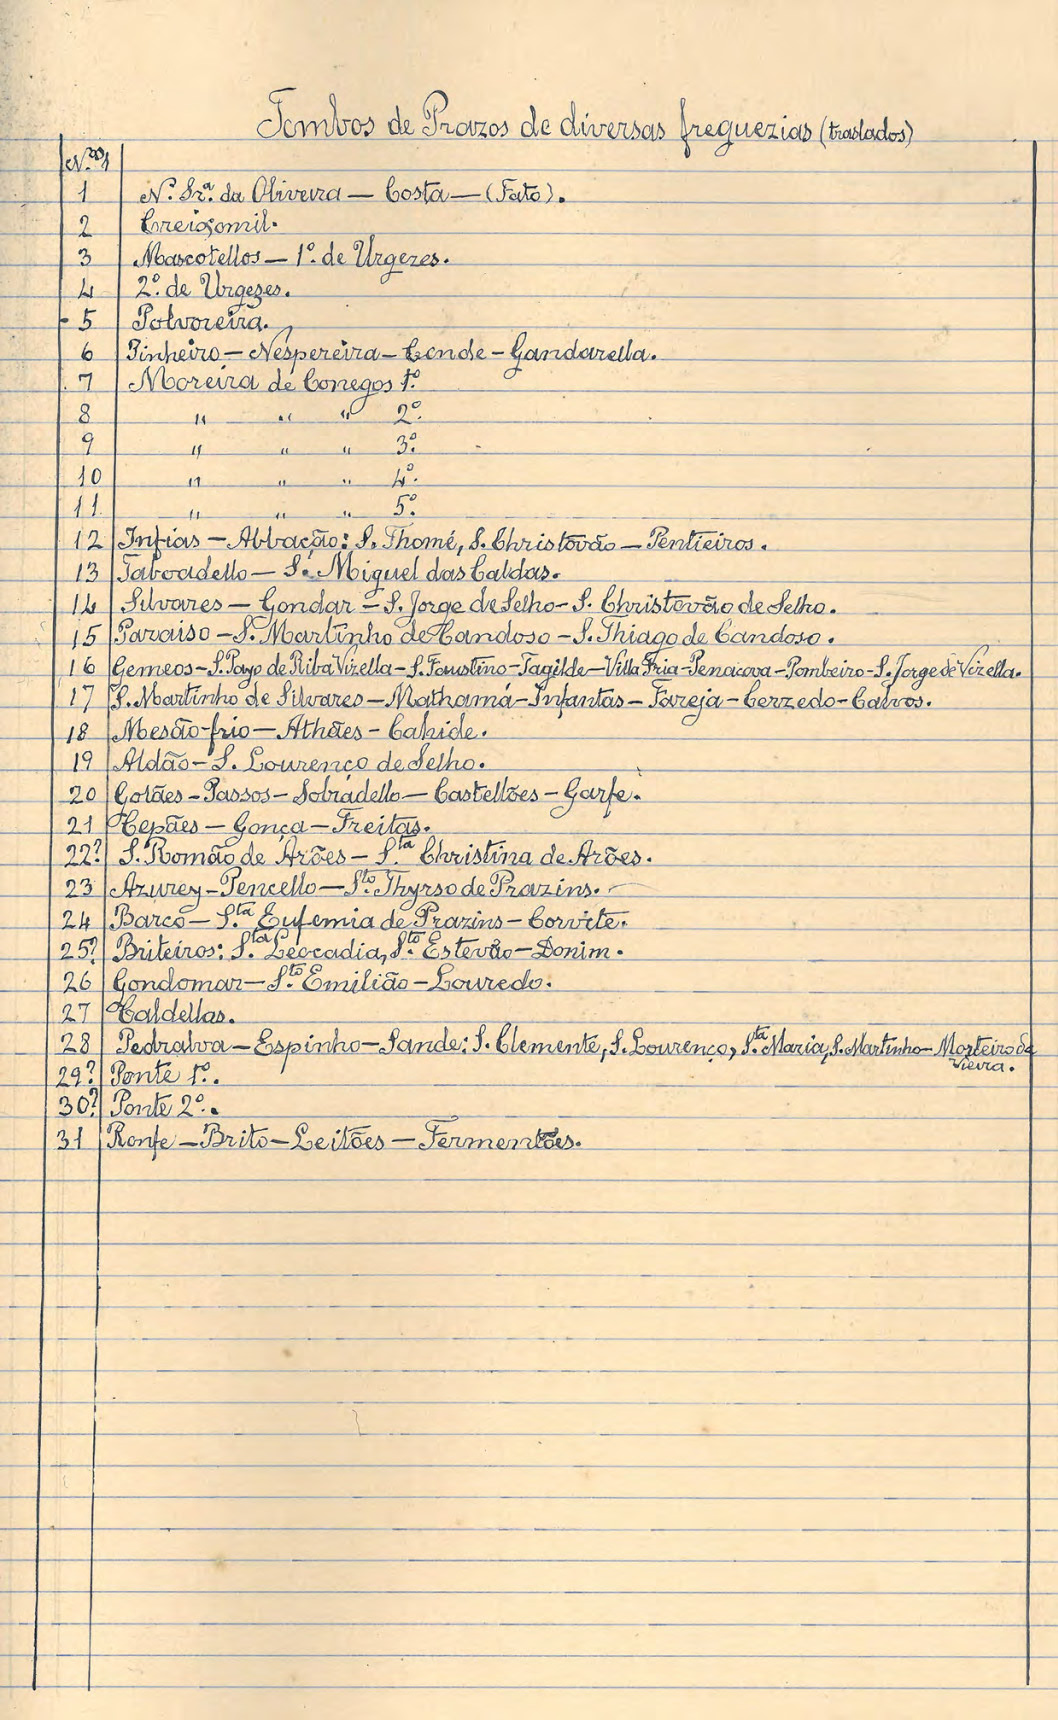 Tombos de Prazos de diversas freguezias (traslados)
N.os
1 N.ª Sr.ª da Oliveira — Costa — (Fato).
2 Creixomil.
3 Mascotellos — 1.º de Urgezes.
4 2.º de Urgezes.
5 Polvoreira.
6 Pinheiro — Nespereira — Conde — Gandarella.
7 Moreira de Conegos 1.º
8 " " " 2.º
9 " " " 3.º
10 " " " 4.º
11 " " " 5.º
12 Infias — Abbação: S. Thomé, S. Christovão — Pentieiros.
13 Taboadello — S. Miguel das Caldas.
14 Silvares — Gondar — S. Jorge de Selho — S. Christovão de Selho.
15 Paraiso — S. Martinho de Candoso — S. Thiago de Candoso.
16 Gemeos — S. Payo de Riba Vizella — S. Faustino — Tagilde — Villa Fria — Penacova — Pombeiro — S. Jorge de Vizella.
17 S. Martinho de Silvares — Mathamá — Infantas — Fareja — Cerzedo — Calvos.
18 Mesão-frio — Athães — Cahide.
19 Aldão — S. Lourenço de Selho.
20 Golães — Passos — Sobradello — Castellões — Garfe.
21 Cepães — Gonça — Freitas.
22? S. Romão de Arões — S.ta Christina de Arões.
23 Azurey — Pencello — S.to Thyrso de Prazins.
24 Barco — S.ta Eufemia de Prazins — Corvite.
25? Briteiros: S.ta Leocadia, S.to Estevão — Donim.
26 Gondomar — S.to Emilião — Louredo.
27 Caldellas.
28 Pedralva — Espinho — Sande: S. Clemente, S. Lourenço, S.ta Maria, S. Martinho — Mosteiro da
Vieira.
29? Ponte 1.º.
30? Ponte 2.º.
31 Ronfe — Brito — Leitões — Fermentões.